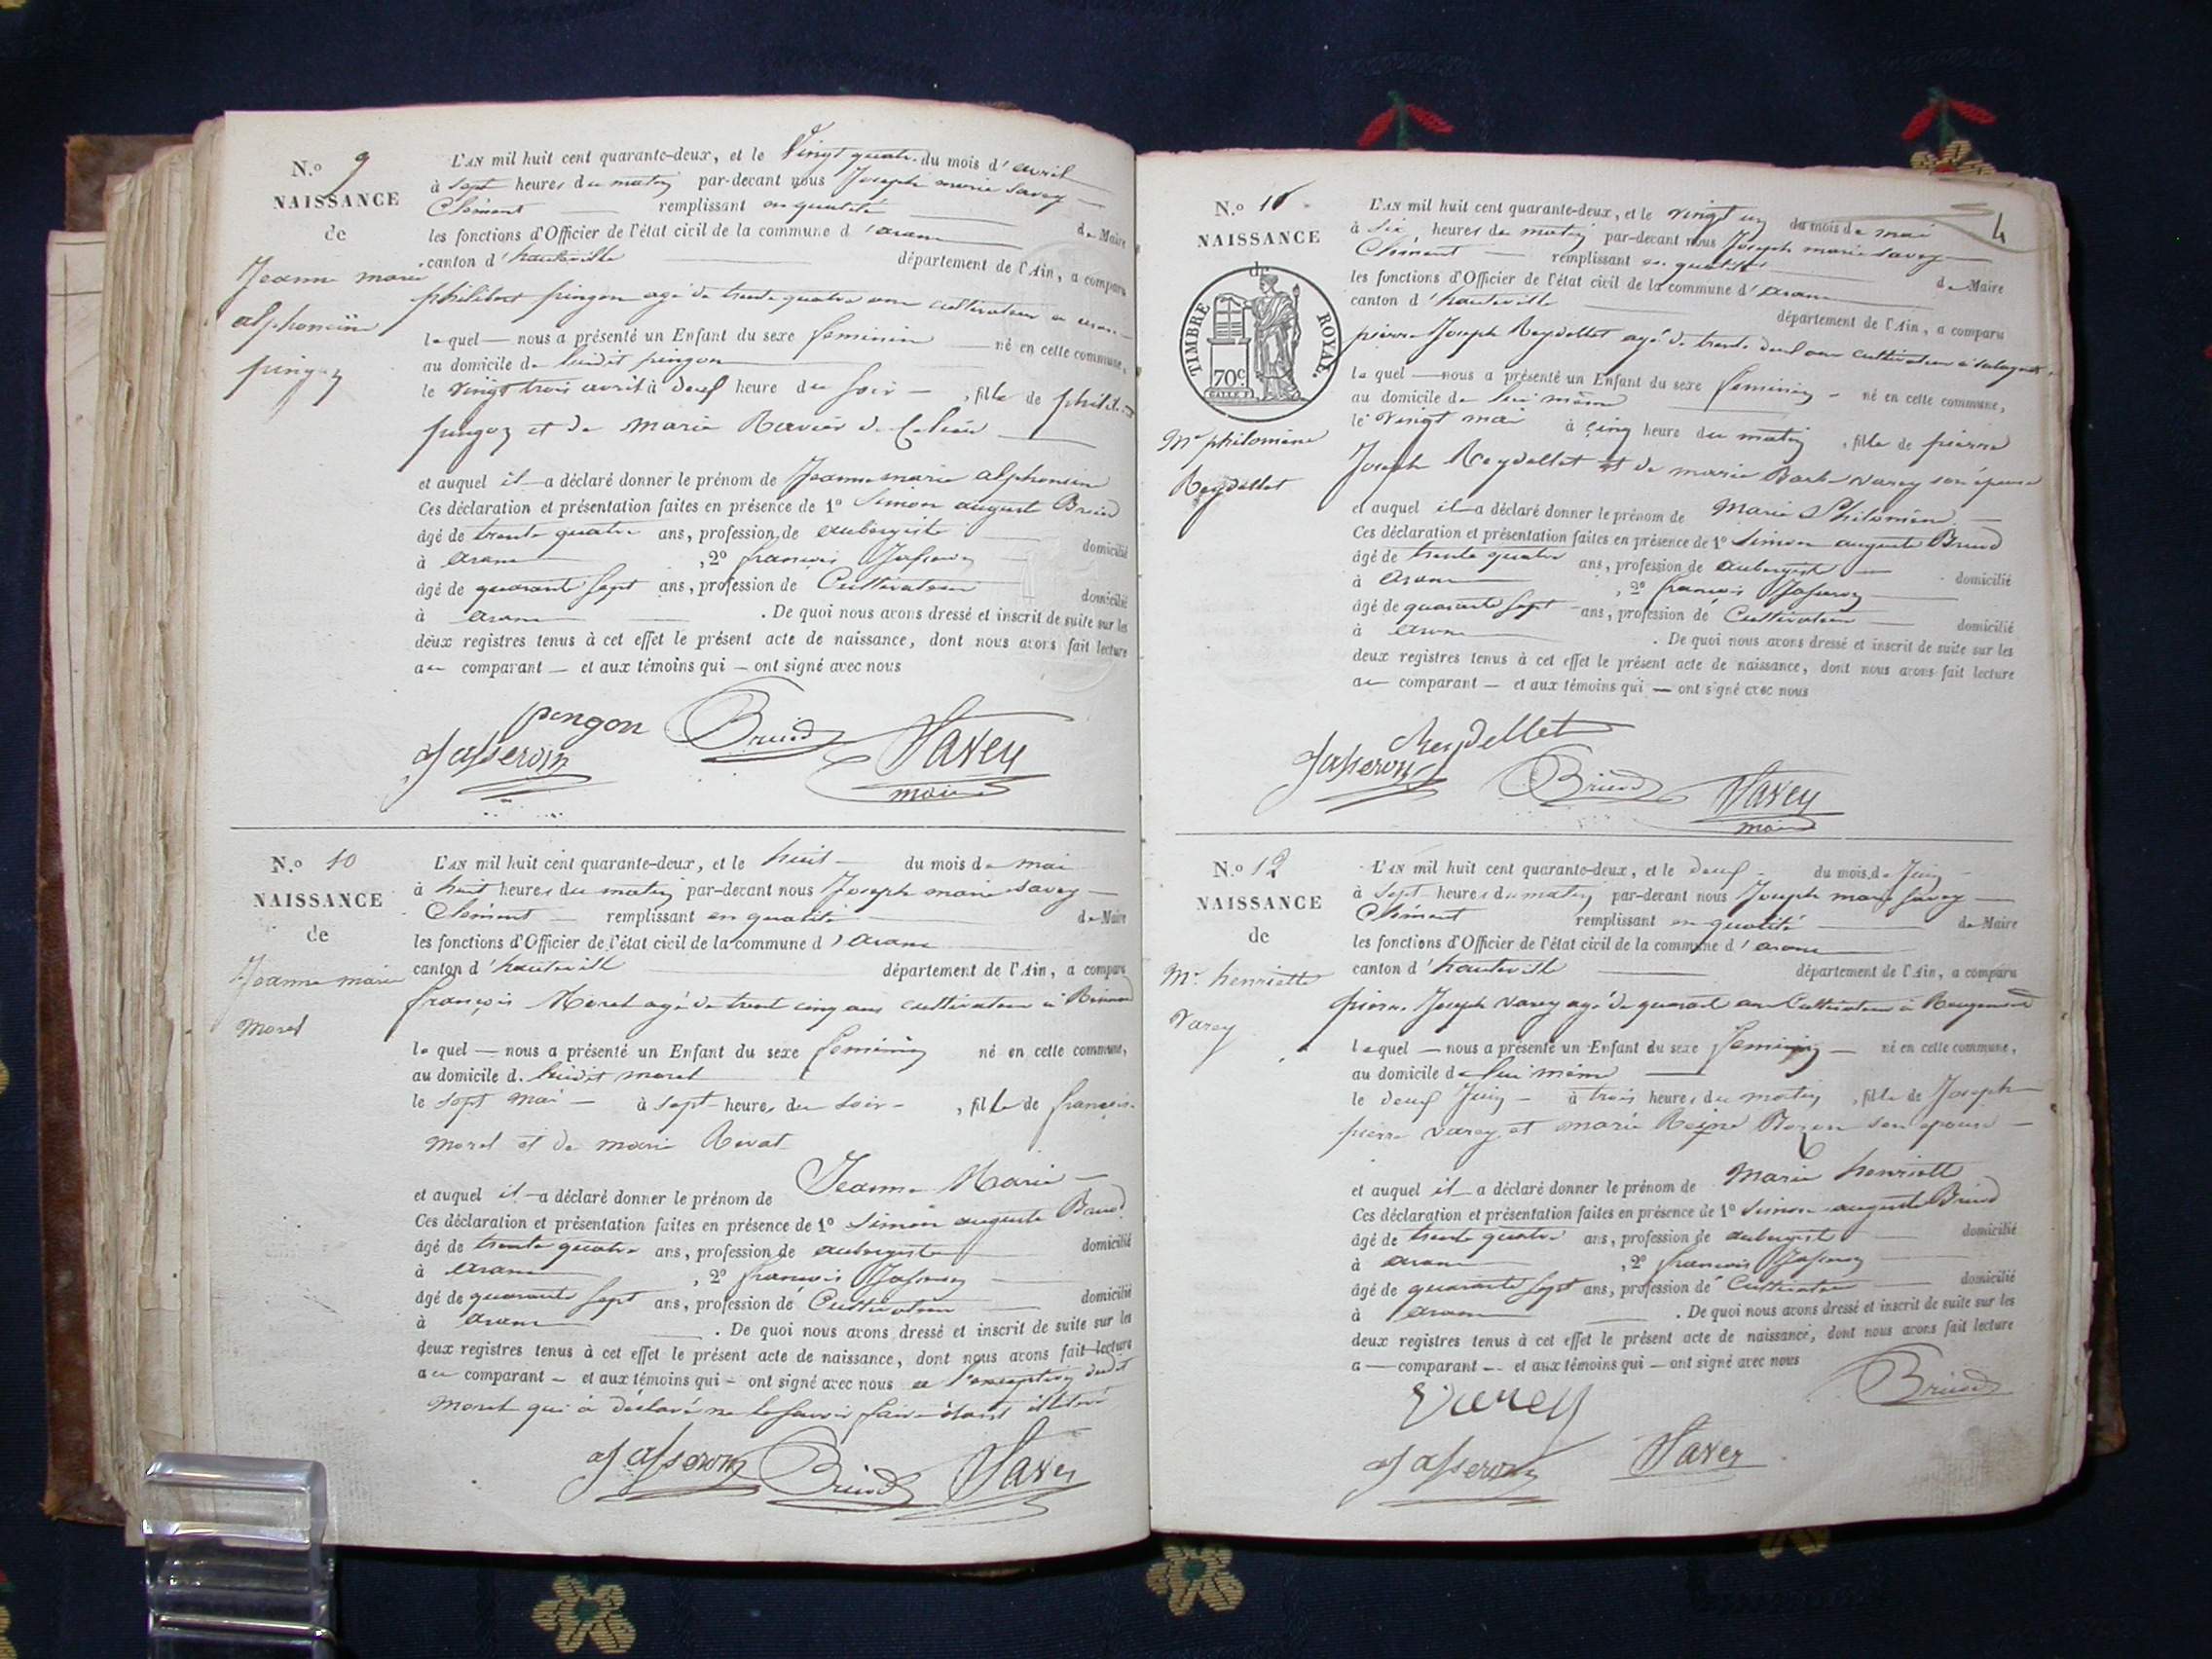 N.º 9
NAISSANCE
de
Jeanne marie
alphonsine
pingon
L'AN mil huit cent quarante-deux, et le Vingt quatre du mois d'avril
à sept heures du matin par-devant nous Joseph marie Savey
Clément remplissant en qualité de Maire
les fonctions d'Officier de l'état civil de la commune d'aranc
canton d'hauteville département de l'Ain, a comparu
philibert pingon agé de trente quatre ans cultivateur a aranc
lequel nous a présenté un Enfant du sexe feminin né en cette commune,
au domicile de ludit pingon
le vingt trois avril à deux heure du soir, fille de philibert
pingon et de marie Ravier de
et auquel il a déclaré donner le prénom de Jeanne marie alphonsine
Ces déclaration et présentation faites en présence de 1º Simon auguste Brund
âgé de trente quatre ans, profession de aubergiste domicilié
à aranc, 2º francois Jasseron
âgé de quarante sept ans, profession de Cultivateur domicilié
à aranc. De quoi nous avons dressé et inscrit de suite sur les
deux registres tenus à cet effet le présent acte de naissance, dont nous avons fait lecture
au comparant et aux témoins qui ont signé avec nous
pingon
Jasseron
Savey
maire
N.º 10
NAISSANCE
de
Jeanne marie
Morel
L'AN mil huit cent quarante-deux, et le huit du mois de mai
à huit heures du matin par-devant nous Joseph marie Savey
Clément remplissant en qualité de Maire
les fonctions d'Officier de l'état civil de la commune d'aranc
canton d'hauteville département de l'Ain, a comparu
françois Morel agé de trente cinq ans cultivateur à
lequel nous a présenté un Enfant du sexe feminin né en cette commune,
au domicile d. ludit morel
le sept mai à sept heures du soir, fille de françois
morel et de marie Rivat
et auquel il a déclaré donner le prénom de Jeanne Marie
Ces déclaration et présentation faites en présence de 1º Simon auguste Brund
âgé de trente quatre ans, profession de aubergiste domicilié
à aranc, 2º francois Jasseron
âgé de quarante sept ans, profession de Cultivateur domicilié
à aranc. De quoi nous avons dressé et inscrit de suite sur les
deux registres tenus à cet effet le présent acte de naissance, dont nous avons fait lecture
au comparant et aux témoins qui ont signé avec nous a l'exception dudit
Morel qui à déclaré ne le savoir faire étant illitéré
Jasseron
Savey
4
N.º 11
NAISSANCE
de
TIMBRE ROYAL.
70c
Mie philomène
Reydellet
L'AN mil huit cent quarante-deux, et le vingt un du mois de mai
à six heures du matin par-devant nous Joseph marie Savey
Clément remplissant en qualité de Maire
les fonctions d'Officier de l'état civil de la commune d'aranc
canton d'hauteville département de l'Ain, a comparu
pierre Joseph Reydellet agé de trente deux ans cultivateur à
lequel nous a présenté un Enfant du sexe feminin né en cette commune,
au domicile de lui même
le vingt mai à cinq heure du matin, fille de pierre
Joseph Reydellet et de marie Barbe Varey son épouse
et auquel il a déclaré donner le prénom de Marie Philomène
Ces déclaration et présentation faites en présence de 1º Simon auguste Brund
âgé de trente quatre ans, profession de aubergiste domicilié
à aranc, 2º francois Jasseron
âgé de quarante sept ans, profession de Cultivateur domicilié
à aranc. De quoi nous avons dressé et inscrit de suite sur les
deux registres tenus à cet effet le présent acte de naissance, dont nous avons fait lecture
au comparant et aux témoins qui ont signé avec nous
Reydellet
Jasseron
Savey
maire
N.º 12
NAISSANCE
de
Mie henriette
Varey
L'AN mil huit cent quarante-deux, et le deux du mois de Juin
à sept heures du matin par-devant nous Joseph marie Savey
Clément remplissant en qualité de Maire
les fonctions d'Officier de l'état civil de la commune d'aranc
canton d'hauteville département de l'Ain, a comparu
pierre Joseph Varey agé de quarante ans Cultivateur à Rougemont
lequel nous a présenté un Enfant du sexe feminin né en cette commune,
au domicile de lui même
le deux Juin à trois heures du matin, fille de Joseph
pierre varey et marie Reine Bozon son épouse
et auquel il a déclaré donner le prénom de Marie henriette
Ces déclaration et présentation faites en présence de 1º Simon auguste Brund
âgé de trente quatre ans, profession de aubergiste domicilié
à aranc, 2º francois Jasseron
âgé de quarante sept ans, profession de Cultivateur domicilié
à aranc. De quoi nous avons dressé et inscrit de suite sur les
deux registres tenus à cet effet le présent acte de naissance, dont nous avons fait lecture
a comparant et aux témoins qui ont signé avec nous
Varey
Jasseron
Savey